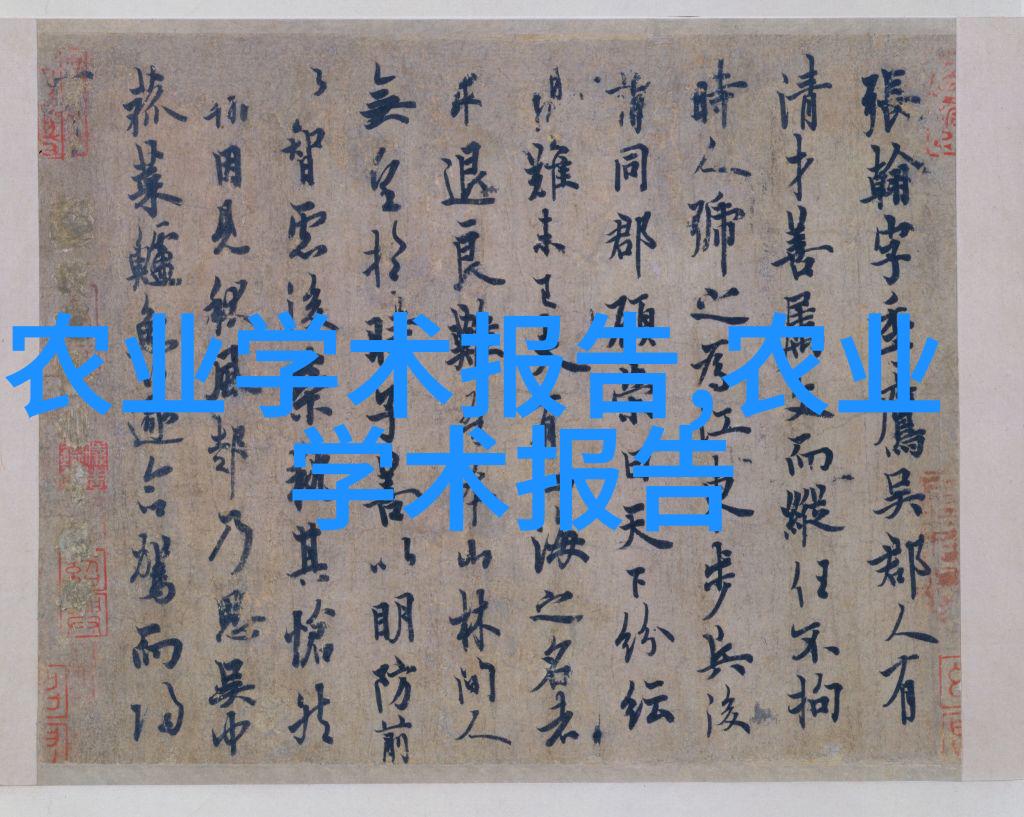 农业学术报告,农业
学术报告
張翰字季鷹吳郡人有
清才善屬文而縱任不拘
時人號之為江東步兵後
謂同郡顧榮曰天下紛紜
難未已夫有四海之名者
求退良難吾本山林間人
無望於時子善以明防前
以智慮後榮執其愴然
翰因見秋風起乃思吳中
菰菜鱸魚遂命駕而歸